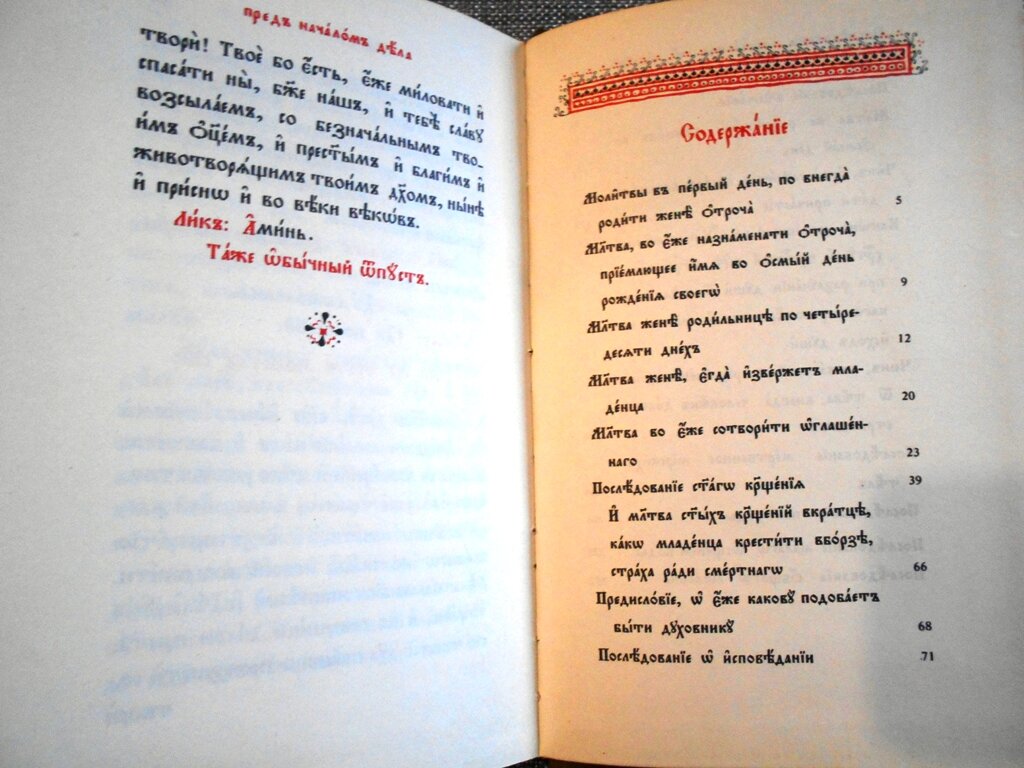 предъ нача́ломъ дѣ́ла
творѝ! Твоѐ бо є҆́сть, є҆́же ми́ловати и҆
спаса́ти ны̀, бж҃е на́шъ, и҆ тебѣ̀ сла́вꙋ
возсыла́емъ, со безнача́льнымъ тво-
и́мъ ѻ҆ц҃е́мъ, и҆ прест҃ы́мъ и҆ благи́мъ и҆
животворѧ́щимъ твои́мъ дх҃омъ, ны́нѣ
и҆ при́снѡ и҆ во вѣ́ки вѣкѡ́въ.
Ли́къ: А҆ми́нь.
Та́же ѡ҆бы́чный ѿпꙋ́стъ.
Содержа́нїе
Моли̑твы въ пе́рвый де́нь, по внегда̀
роди́ти женѣ̀ ѻ҆троча̀ 5
Мл҃тва, во є҆́же назна́менати ѻ҆троча̀,
прїе́млющее и҆́мѧ во ѻ҆смы́й де́нь
рожде́нїѧ своегѡ̀ 9
Мл҃тва женѣ̀ роди́льницѣ по четы́ре-
десѧти дне́хъ 12
Мл҃тва женѣ̀, є҆гда̀ и҆зве́ржетъ мла-
де́нца 20
Мл҃тва во є҆́же сотвори́ти ѡ҆глаше́н-
наго 23
Послѣ́дованїе ст҃а́гѡ кр҃ще́нїѧ 39
И҆ мл҃тва ст҃ы́хъ кр҃ще́нїй вкра́тцѣ,
ка́кѡ младе́нца крести́ти вбо́рзѣ,
стра́ха ра́ди сме́ртнагѡ 66
Предисло́вїе, ѡ҆ є҆́же каковꙋ̀ подоба́етъ
бы́ти дꙋхо́вникꙋ 68
Послѣ́дованїе ѡ҆ и҆сповѣ́данїи 71